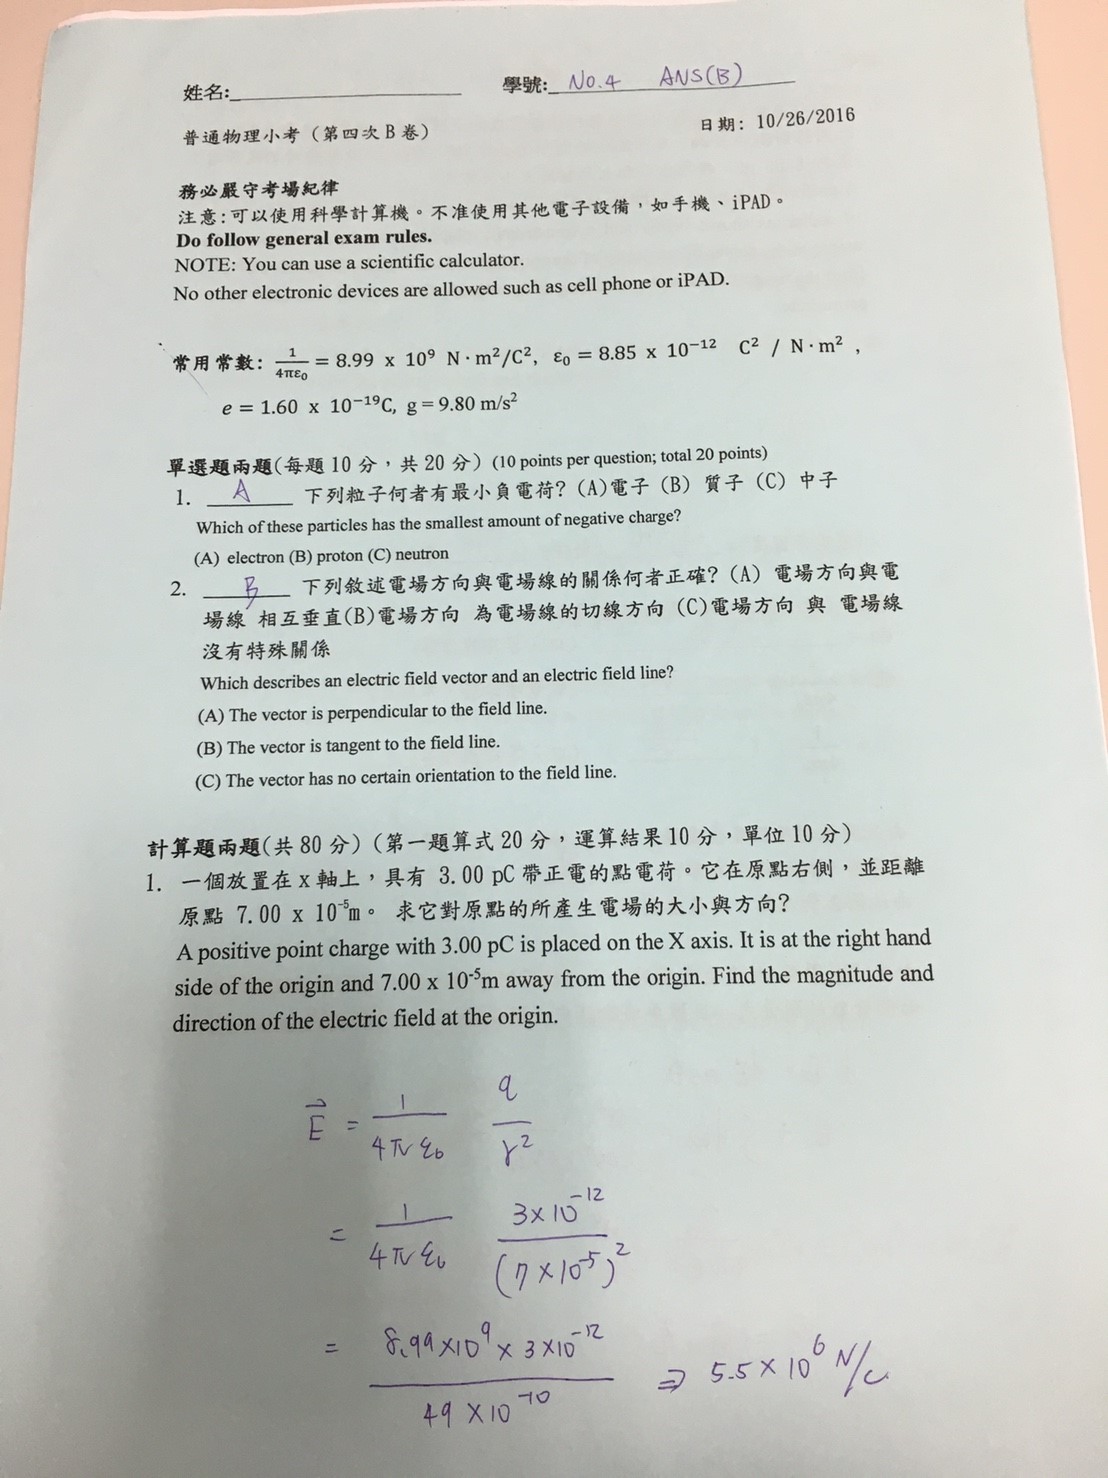 姓名:____________ 學號: No.4 ANS(B)
普通物理小考（第四次 B 卷） 日期: 10/26/2016
務必嚴守考場紀律
注意:可以使用科學計算機。不准使用其他電子設備，如手機、iPAD。
Do follow general exam rules.
NOTE: You can use a scientific calculator.
No other electronic devices are allowed such as cell phone or iPAD.
常用常數: 1/4πε₀ = 8.99 x 10⁹ N·m²/C², ε₀ = 8.85 x 10⁻¹² C² / N·m² ,
e = 1.60 x 10⁻¹⁹C, g = 9.80 m/s²
單選題兩題(每題 10 分，共 20 分) (10 points per question; total 20 points)
1. A 下列粒子何者有最小負電荷? (A)電子 (B) 質子 (C) 中子
Which of these particles has the smallest amount of negative charge?
(A) electron (B) proton (C) neutron
2. B 下列敘述電場方向與電場線的關係何者正確? (A) 電場方向與電
場線 相互垂直(B)電場方向 為電場線的切線方向 (C)電場方向 與 電場線
沒有特殊關係
Which describes an electric field vector and an electric field line?
(A) The vector is perpendicular to the field line.
(B) The vector is tangent to the field line.
(C) The vector has no certain orientation to the field line.
計算題兩題(共 80 分) (第一題算式 20 分，運算結果 10 分，單位 10 分)
1. 一個放置在 x 軸上，具有 3.00 pC 帶正電的點電荷。它在原點右側，並距離
原點 7.00 x 10⁻⁵m。 求它對原點的所產生電場的大小與方向?
A positive point charge with 3.00 pC is placed on the X axis. It is at the right hand
side of the origin and 7.00 x 10⁻⁵m away from the origin. Find the magnitude and
direction of the electric field at the origin.
E⃗ = 1/4πε₀ q/r²
= 1/4πε₀ 3×10⁻¹²/(7×10⁻⁵)²
= 8.99×10⁹ × 3×10⁻¹²/49×10⁻¹⁰ ⇒ 5.5×10⁶ N/C